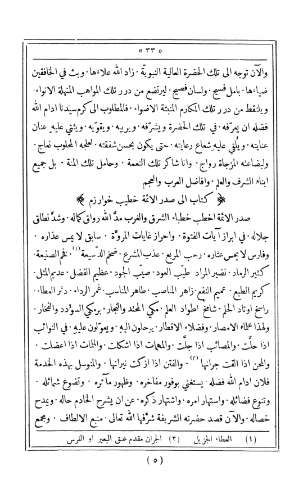 « ٣٣ »
والآن توجه الى تلك الحضرة العالية النبوية . زاد الله علاءها . وبث في الخافقين
ضياءها . بامل فسيح . ولسان فصيح . ليرتضع من درر تلك المواهب المنهلة الانواء.
ويلتقط من درر تلك المكارم المنبثة الاضواء . فالمطلوب الى كرم سيدنا ادام الله
فضله ان يعرّفه . في تلك الحضرة ويشرّفه . ويربيه . ويقوّيه . ويثني عليه عنان
عنايته . ويلقي عليه شعاع رعايته . حتى يكون بحسن شفقته . لعلمه المجلوب نفاج.
ولبضاعته المزجاة رواج . وانا شاكر تلك النعمة . وحامل تلك المنة . بل جميع
ابناء الشرف والعلم . وافاضل العرب والعجم
﴿ كتاب الى صدر الائمة خطيب خوارزم ﴾
صدر الائمة اخطب خطباء الشرق والغرب مدّ الله رواق كماله . وشدّ نطاق
جلاله . في ابراز آيات الفتوة . واحراز غايات المروّة . سابق لا يمس عذاره .
وفارس لا يمس غباره . رحب المريع . عذب المشرع . ضخم الدسيعة (١) . فخم الصنيعة.
كثير الرماد . نضير المراد . طيب العود . صيب الجود . عظيم الفضل . عديم المثل .
كريم الطبع . عميم النفع . زاهر المناصب . طاهر المناسب . غمر الرداء . دثر العطاء.
راسخ اوتاد الحلم . شامخ اطواد العلم . مكي المحتد والنجار . برمكي السودد والفخار .
ولهذا علماء الامصار . وفضلاء الاقطار . يرحلون اليه . ويعوّلون عليه . في النوائب
اذا حلّت . والمصائب اذا جلّت . والمعضلات اذا اشكلت . والملمات اذا اعضلت .
والمحن اذا القت جرانها (٢) . والفتن اذا اذكت نيرانها . والمتوسل بهذه الخدمة
فلان ادام الله فضله . يستغني بوفور مفاخره . وظهور مآثره . وتضوع شمائله .
وتنوع فضائله . واشتهار امره . واشتهار ذكره . عن ان يشرح الخادم حاله . ويمدح
خصاله . والآن قصد حضرته الشريفة شرّفها الله تعالى . منبع الالطاف . ومجمع
(١) العطاء الجزيل (٢) الجران مقدم عنق البعير او الفرس
(٥)